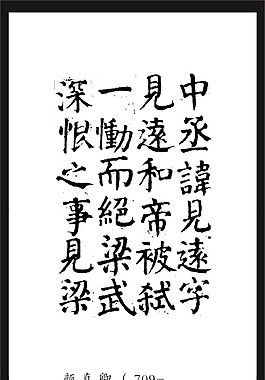 中丞諱見遠字
見遠和帝被弑
一慟而絕梁武
深恨之事見梁
颜真卿(709—